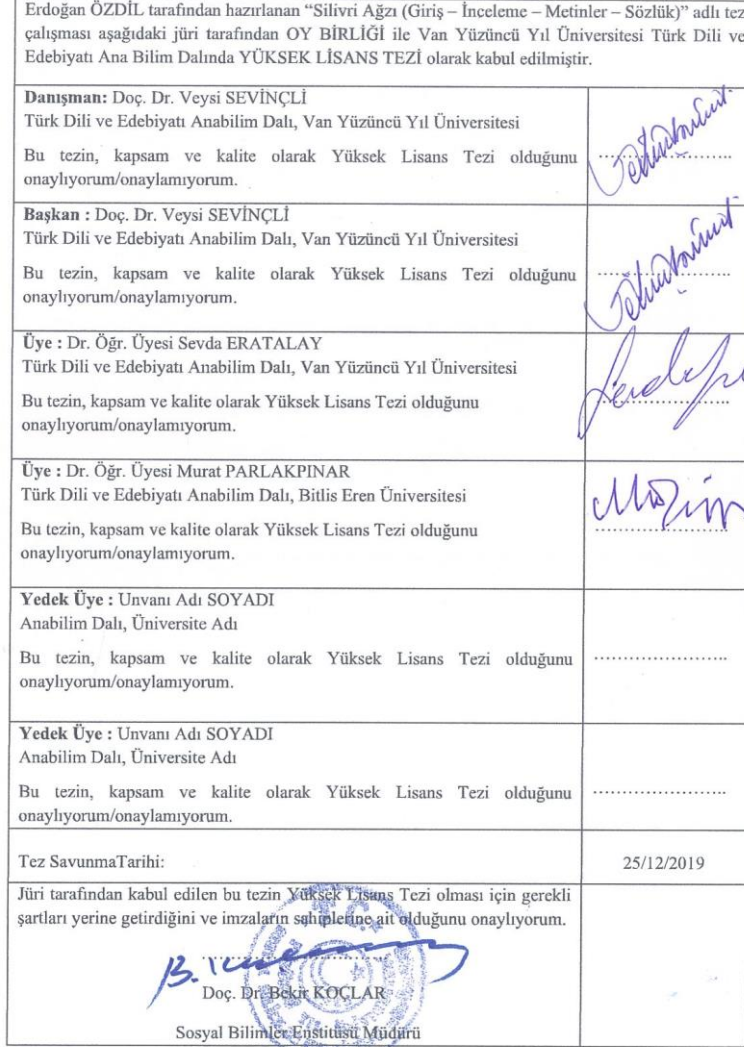 Erdoğan ÖZDİL tarafından hazırlanan “Silivri Ağzı (Giriş – İnceleme – Metinler – Sözlük)” adlı tez
çalışması aşağıdaki jüri tarafından OY BİRLİĞİ ile Van Yüzüncü Yıl Üniversitesi Türk Dili ve
Edebiyatı Ana Bilim Dalında YÜKSEK LİSANS TEZİ olarak kabul edilmiştir.
Danışman: Doç. Dr. Veysi SEVİNÇLİ
Türk Dili ve Edebiyatı Anabilim Dalı, Van Yüzüncü Yıl Üniversitesi
Bu tezin, kapsam ve kalite olarak Yüksek Lisans Tezi olduğunu
onaylıyorum/onaylamıyorum.
Başkan : Doç. Dr. Veysi SEVİNÇLİ
Türk Dili ve Edebiyatı Anabilim Dalı, Van Yüzüncü Yıl Üniversitesi
Bu tezin, kapsam ve kalite olarak Yüksek Lisans Tezi olduğunu
onaylıyorum/onaylamıyorum.
Üye : Dr. Öğr. Üyesi Sevda ERATALAY
Türk Dili ve Edebiyatı Anabilim Dalı, Van Yüzüncü Yıl Üniversitesi
Bu tezin, kapsam ve kalite olarak Yüksek Lisans Tezi olduğunu
onaylıyorum/onaylamıyorum.
Üye : Dr. Öğr. Üyesi Murat PARLAKPINAR
Türk Dili ve Edebiyatı Anabilim Dalı, Bitlis Eren Üniversitesi
Bu tezin, kapsam ve kalite olarak Yüksek Lisans Tezi olduğunu
onaylıyorum/onaylamıyorum.
Yedek Üye : Unvanı Adı SOYADI
Anabilim Dalı, Üniversite Adı
Bu tezin, kapsam ve kalite olarak Yüksek Lisans Tezi olduğunu
onaylıyorum/onaylamıyorum.
Yedek Üye : Unvanı Adı SOYADI
Anabilim Dalı, Üniversite Adı
Bu tezin, kapsam ve kalite olarak Yüksek Lisans Tezi olduğunu
onaylıyorum/onaylamıyorum.
Tez SavunmaTarihi: 25/12/2019
Jüri tarafından kabul edilen bu tezin Yüksek Lisans Tezi olması için gerekli
şartları yerine getirdiğini ve imzaların sahiplerine ait olduğunu onaylıyorum.
Doç. Dr. Bekir KOÇLAR
Sosyal Bilimler Enstitüsü Müdürü